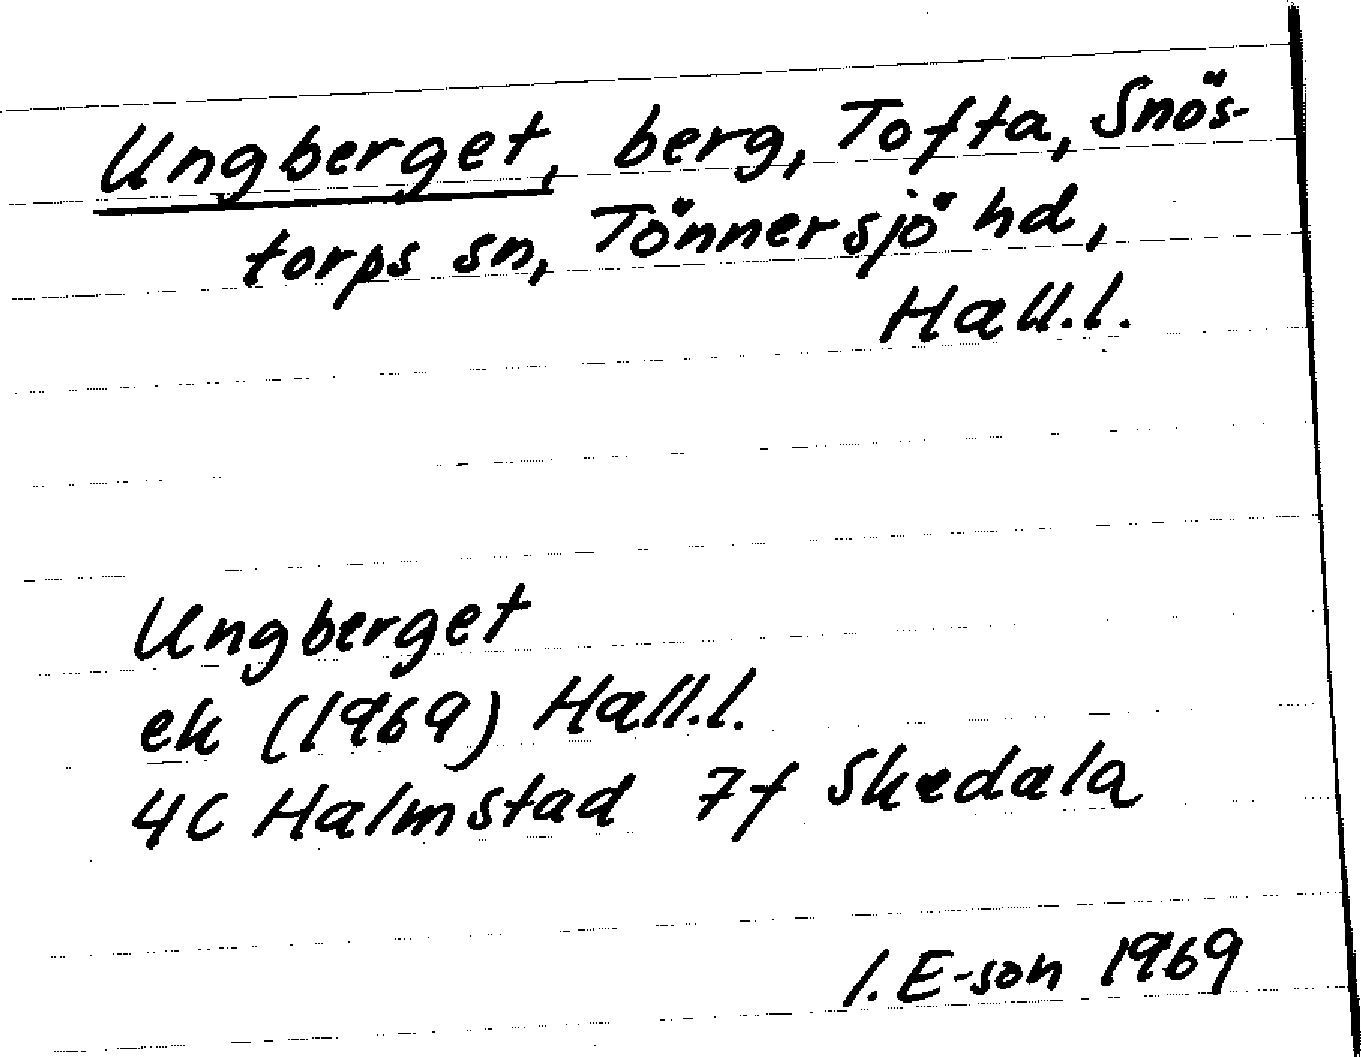 Ungberget, berg, Tofta, Snös-
torps sn, Tönnersjö hd,
Hall.l.
Ungberget
ek (1969) Hall.l.
4C Halmstad 7f Skedala
I. E-son 1969